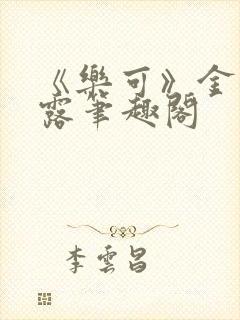 《樂可》金
露筆趣閣
李雲昌